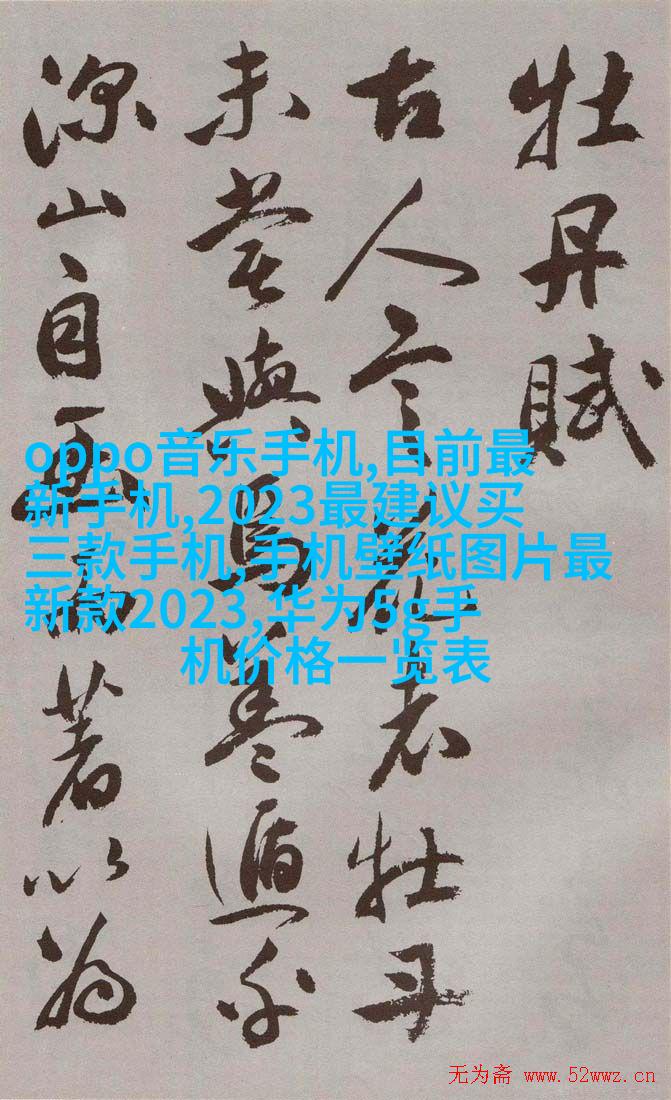 牡丹賦
古人言花者牡丹
未嘗與焉蓋遁
深山自幽而著以為
oppo音乐手机,目前最
新手机,2023最建议买
三款手机,手机壁纸图片最
新款2023,华为5g手
机价格一览表
无为斋 www.52wwz.cn